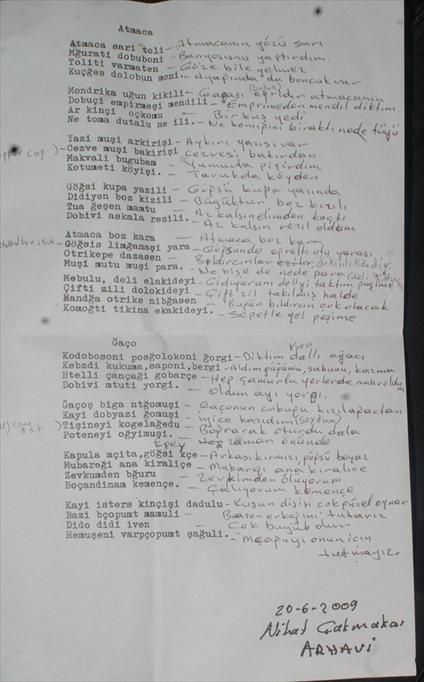 Atmaca
Atmaca sari toli - Atmacanın gözü sarı
Mğurati dobuboni - Banyosunu yaptırdım.
Toliti varmaten - Göze bile gelmez
Kuçğes dolobun moni. - Ayağında da boncuk var
Mondrika uğun kikili - Gagası eğridir atmacanın
Dobuçi empirmeşi mendili - Emprimeden mendil diktim.
Ar kinçi oçkomu - Bir kuş yedi
Ne toma dutalu ne ili. - Ne kemiğini bıraktı nede tüyü
Yazi muşi arkirişi - Aykırı yazısı var
Cezve muşi bakirişi - cezvesi bakırdan
Makvali bugubam - Yumurta pişirdim
Kotumeti köyişi. - Tavukda köyden
Göğsi kupa yazili - Göğsü kupa yazında
Didiyen boz kizili - Büyüktür, boz kızılı
Tua geşen mamtu - Az kalsın elimden kaçtı
Dobivi askala rezili. - Az kalsın rezil oldum
Atmaca boz kara - Atmaca boz kara
Göğsis limğanaşi yara - Göğsünde eğrelti otu yarası
Otrikepe dazasen -
Muşi mutu muşi para. - Ne bişe de nede para
Mebulu, deli elakideyi - Gidiyorum deliyi taktım peşime
Çifti zili dolokideyi - Çift zil takılmış halde
Mandğa otrike nibğasen - Bugün bıldırcın çok olacak
Komoğti tikina ekakideyi. - Sepetle gel peşime
Ğaço
Kodobosoni posğolokoni ğorgi - Diktim dallı ağacı
Kebzdi kukuma, saponi, bergi - Aldım güğümü, sabunu, kazma
Stelli çançaği gobarçe - Hep çamurlu yerlerde mahvoldum
Dobivi mtuti yorgi. - Oldun ayı yorgi.
Ğaçoş biga ntğomuşi - Gaçonun çubuğu kızılağaçtan
Kayi dobyazi ğomuşi - İyice kazıdım (soydum)
Tişineyi kogelağedu - Başparak oturdu dala
Poteneyi oğyimuşi. - Her zaman önünde
Kapula mçita, göğsi kçe - Arkası kırmızı, göğsü beyaz
Mubareği ana kiraliçe - Mubareği ana kraliçe
Zevkumden bğuru - Zevkimden ölüyorum
Boçandinam kemençe. - Çalıyorum kemençe
Kayi isters kinçişi dadulu - Kuşun dişisi çok güzel oynar
Bazi bçopumt mamuli - Bazen erkeğini tutarız
Dido didi iven - Çok büyük olur
Hemuşeni varpçopumt şağuli. -
tutmayız.
20-6-2009
Nihat Çakmakas
ARHAVİ